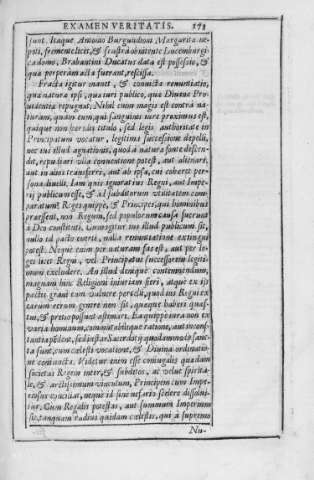 EXAMEN VERITATIS. 173
sunt. Itaque Antonio Burgundioni Margarita ne-
pti, fremente licet, & frustra obnitente Lucemburgi-
ca domo, Brabantini Ducatus data est possessio, &
quæ perperam acta fuerant, rescissa.
Fracta igitur manet, & convicta renuntiatio,
quia natura ipsi, quia iuri publico, quia Divinæ Pro-
videntiæ repugnat; Nihil enim magis est contrà na-
turam, quàm eum, qui sanguinis iure proximus est,
quique non hæredis titulo, sed legis authoritate ad
Principatum vocatur, legitima successione depelli,
nec eui illud agnationis, quod à natura fonte descen-
dit, repudiari vlla conventione potest, aut alienari,
aut in alios transferri, aut ab ipsa, cui cohæret per-
sona divelli. Iam quis ignorat ius Regni, aut Impe-
rij publicum esse, & ad subditorum vtilitatem com-
paratum? Reges quippè, & Principes, qui hominibus
præessent, non Regum, sed populorum causa fuerunt
à Deo constituti. Cum igitur ius illud publicum sit,
nullo id pacto everti, nulla renuntiatione extingui
potest. Neque enim per naturam fas est, aut per le-
ges licet Regni, vel Principatus successorem legiti-
mum excludere. An illud denique contemnendum,
magnam hinc Religioni iniuriam fieri, atque ex ijs
pactis gravi eam vulnere percelli, quod ius Regni ex
earum rerum genere non sit, quæque haberi quæs-
tui, & pretio possunt æstimari. Ea quippè iura non ex
varia hominum, commutabilique ratione, aut incons-
tantia pendent, sed instar Sacerdotij quodammodo sanc-
ta sunt, cum cælesti vocatione, & Divina ordinatio-
ne contracta. Videtur enim esse coniugalis quædam
societas Regem inter, & subditos, ac velut spirita-
le, & arctissimum vinculum, Principem cum Impe-
rio sui conciliat, neque id sine nefario scelere dissolvi-
tur. Cum Regalis potestas, aut summum Imperium
sit, tanquam radius quidam cælestis, qui à supremo
Nu-